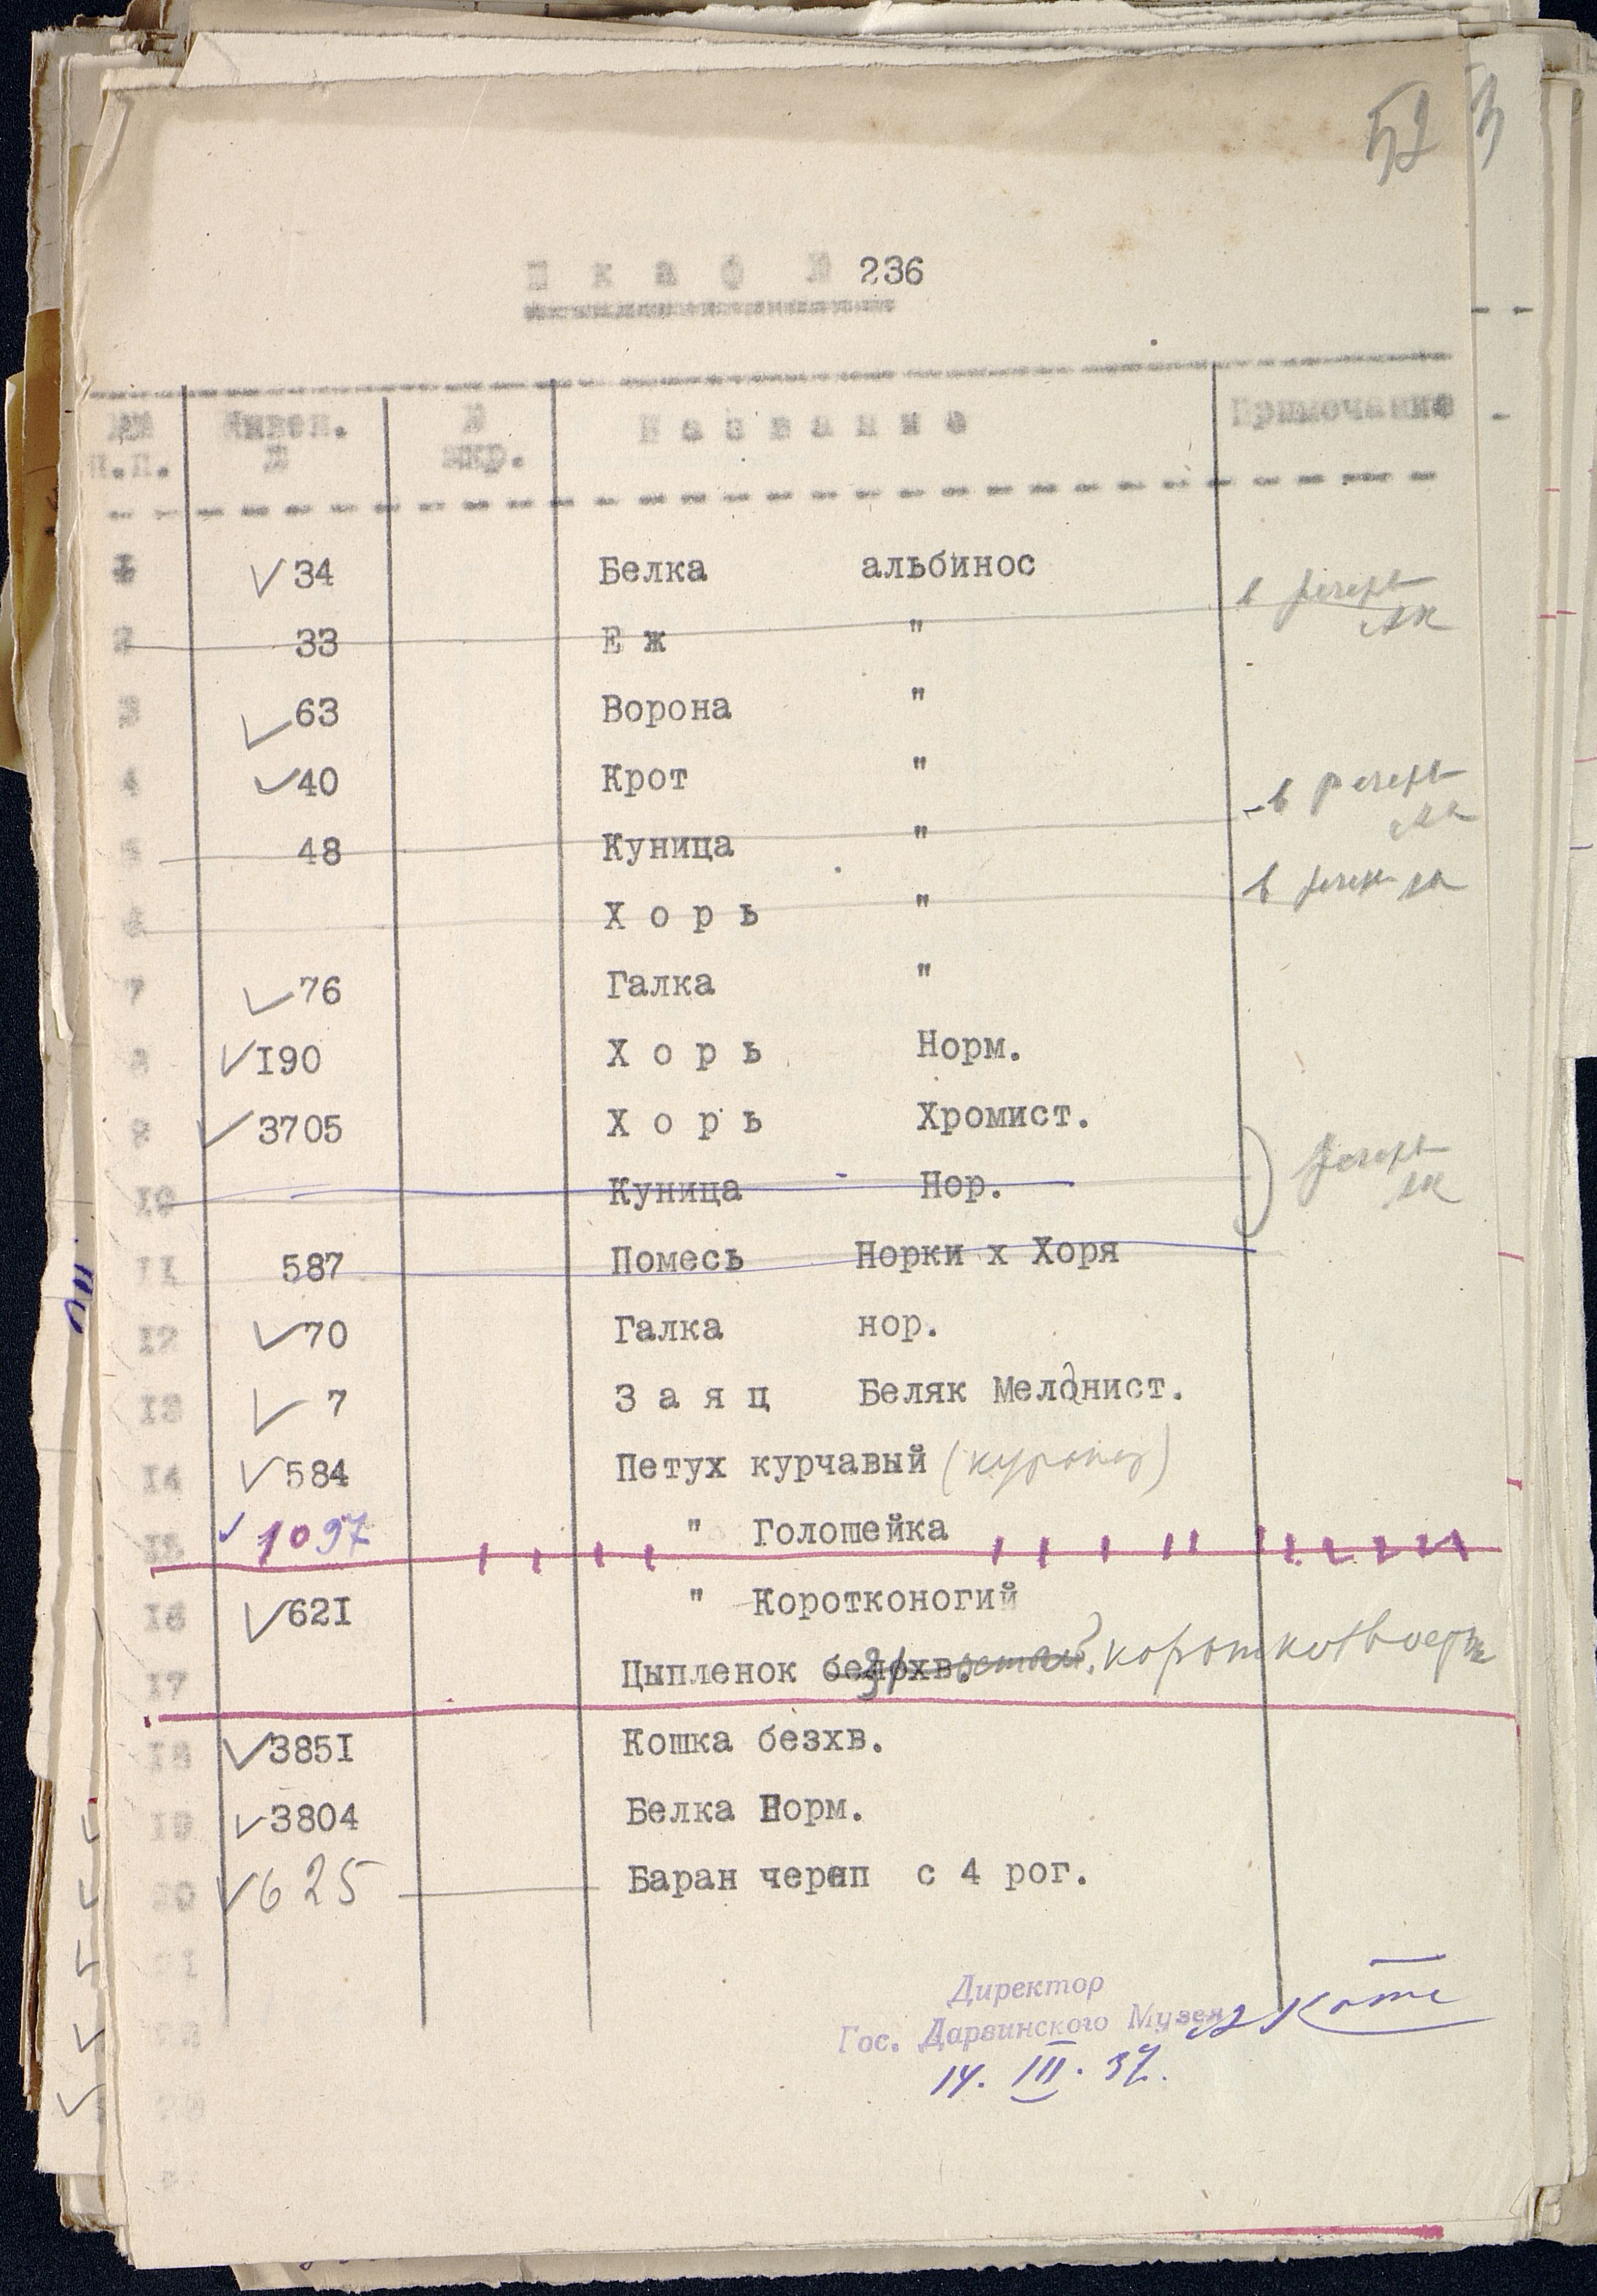 52 3
Ш к а ф № 236
№№ Инвен. № Название Примечание
п.п. № шкр.
1 34 Белка альбинос
2 33 Е ж " в резерв
АК
3 63 Ворона "
4 40 Крот "
5 48 Куница " в резерв
АК
6 Х о р ь " в резерв АК
7 76 Галка "
8 I90 Х о р ь Норм.
9 3705 Х о р ь Хромист.
10 Куница Нор. резерв
АК
11 587 Помесь Норки х Хоря
12 70 Галка нор.
13 7 З а я ц Беляк Меланист.
14 584 Петух курчавый
15 1097 " Голошейка
16 62I " Коротконогий
17 Цыпленок
18 385I Кошка безхв.
19 3804 Белка Норм.
20 625 Баран череп с 4 рог.
21
22
23
Директор
Гос. Дарвинского Музея АКотс
14. III. 37.